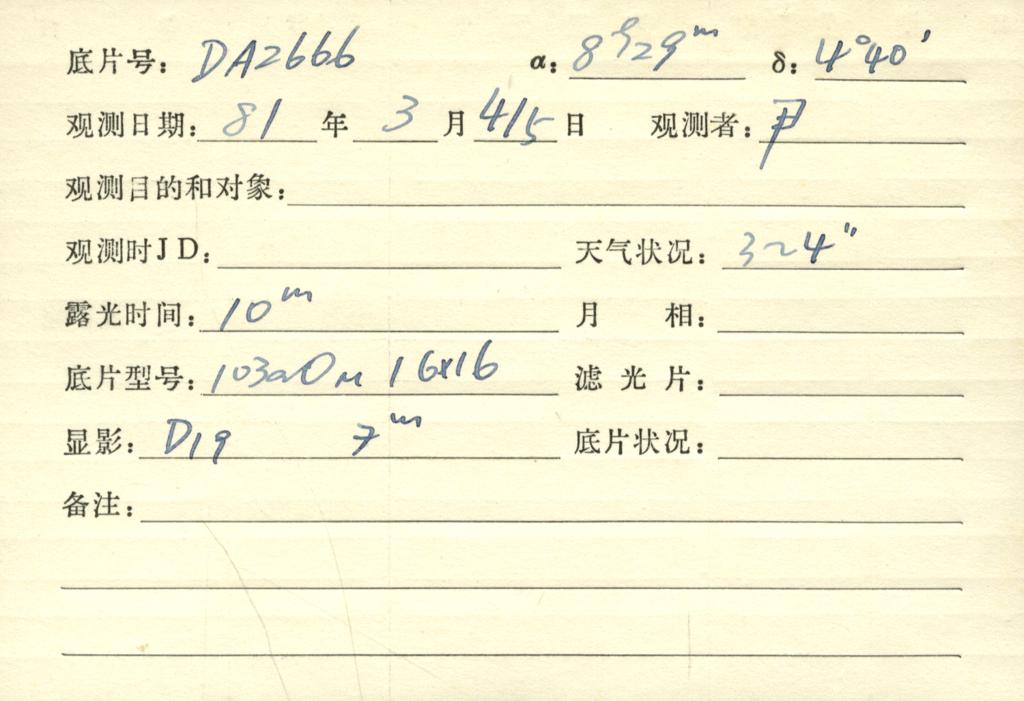 底片号: DA2666 α: 8ʰ29ᵐ δ: 4°40′
观测日期: 81 年 3 月 4/5 日 观测者: 尹
观测目的和对象:
观测时JD: 天气状况: 3~4″
露光时间: 10ᵐ 月 相:
底片型号: 103aO 16×16 滤 光 片:
显影: D19 7ᵐ 底片状况:
备注: